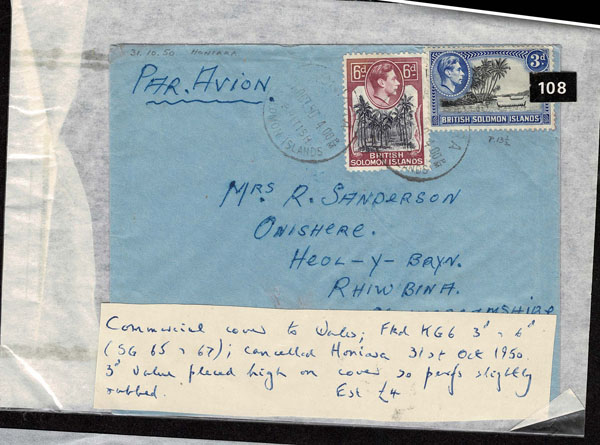 31.10.50. HONIARA
PAR AVION.
6d 6d
BRITISH
SOLOMON ISLANDS
3d
BRITISH SOLOMON ISLANDS
108
P.13½
MRS R. SANDERSON
ONISHERE.
HEOL-Y-BRYN.
RHIWBINA.
Commercial cover to Wales; Fkd KG6 3d, 6d
(SG 65, 67); cancelled Honiara 31st Oct 1950.
3d value placed high on cover so perfs slightly
rubbed. Est £4